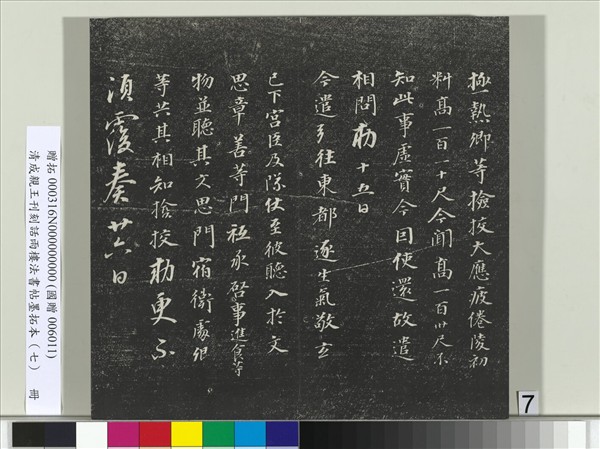 極熱卿等撿挍大應疲倦陵初
料高一百一十尺今聞高一百卅尺不
知此事虛實今因使還故遣
相問勅 十五日
今遣弘往東都逐生氣敬玄
已下宮臣及隊仗至彼聽入於文
思章善等門祗承啓事進食等
物並聽其文思門宿衛處仰
等共其相知撿挍勅更不
須覆奏廿六日
贈拓 000316N000000000 (國贈 006011)
清成親王刊刻話雨樓法書帖墨拓本（七） 冊
7